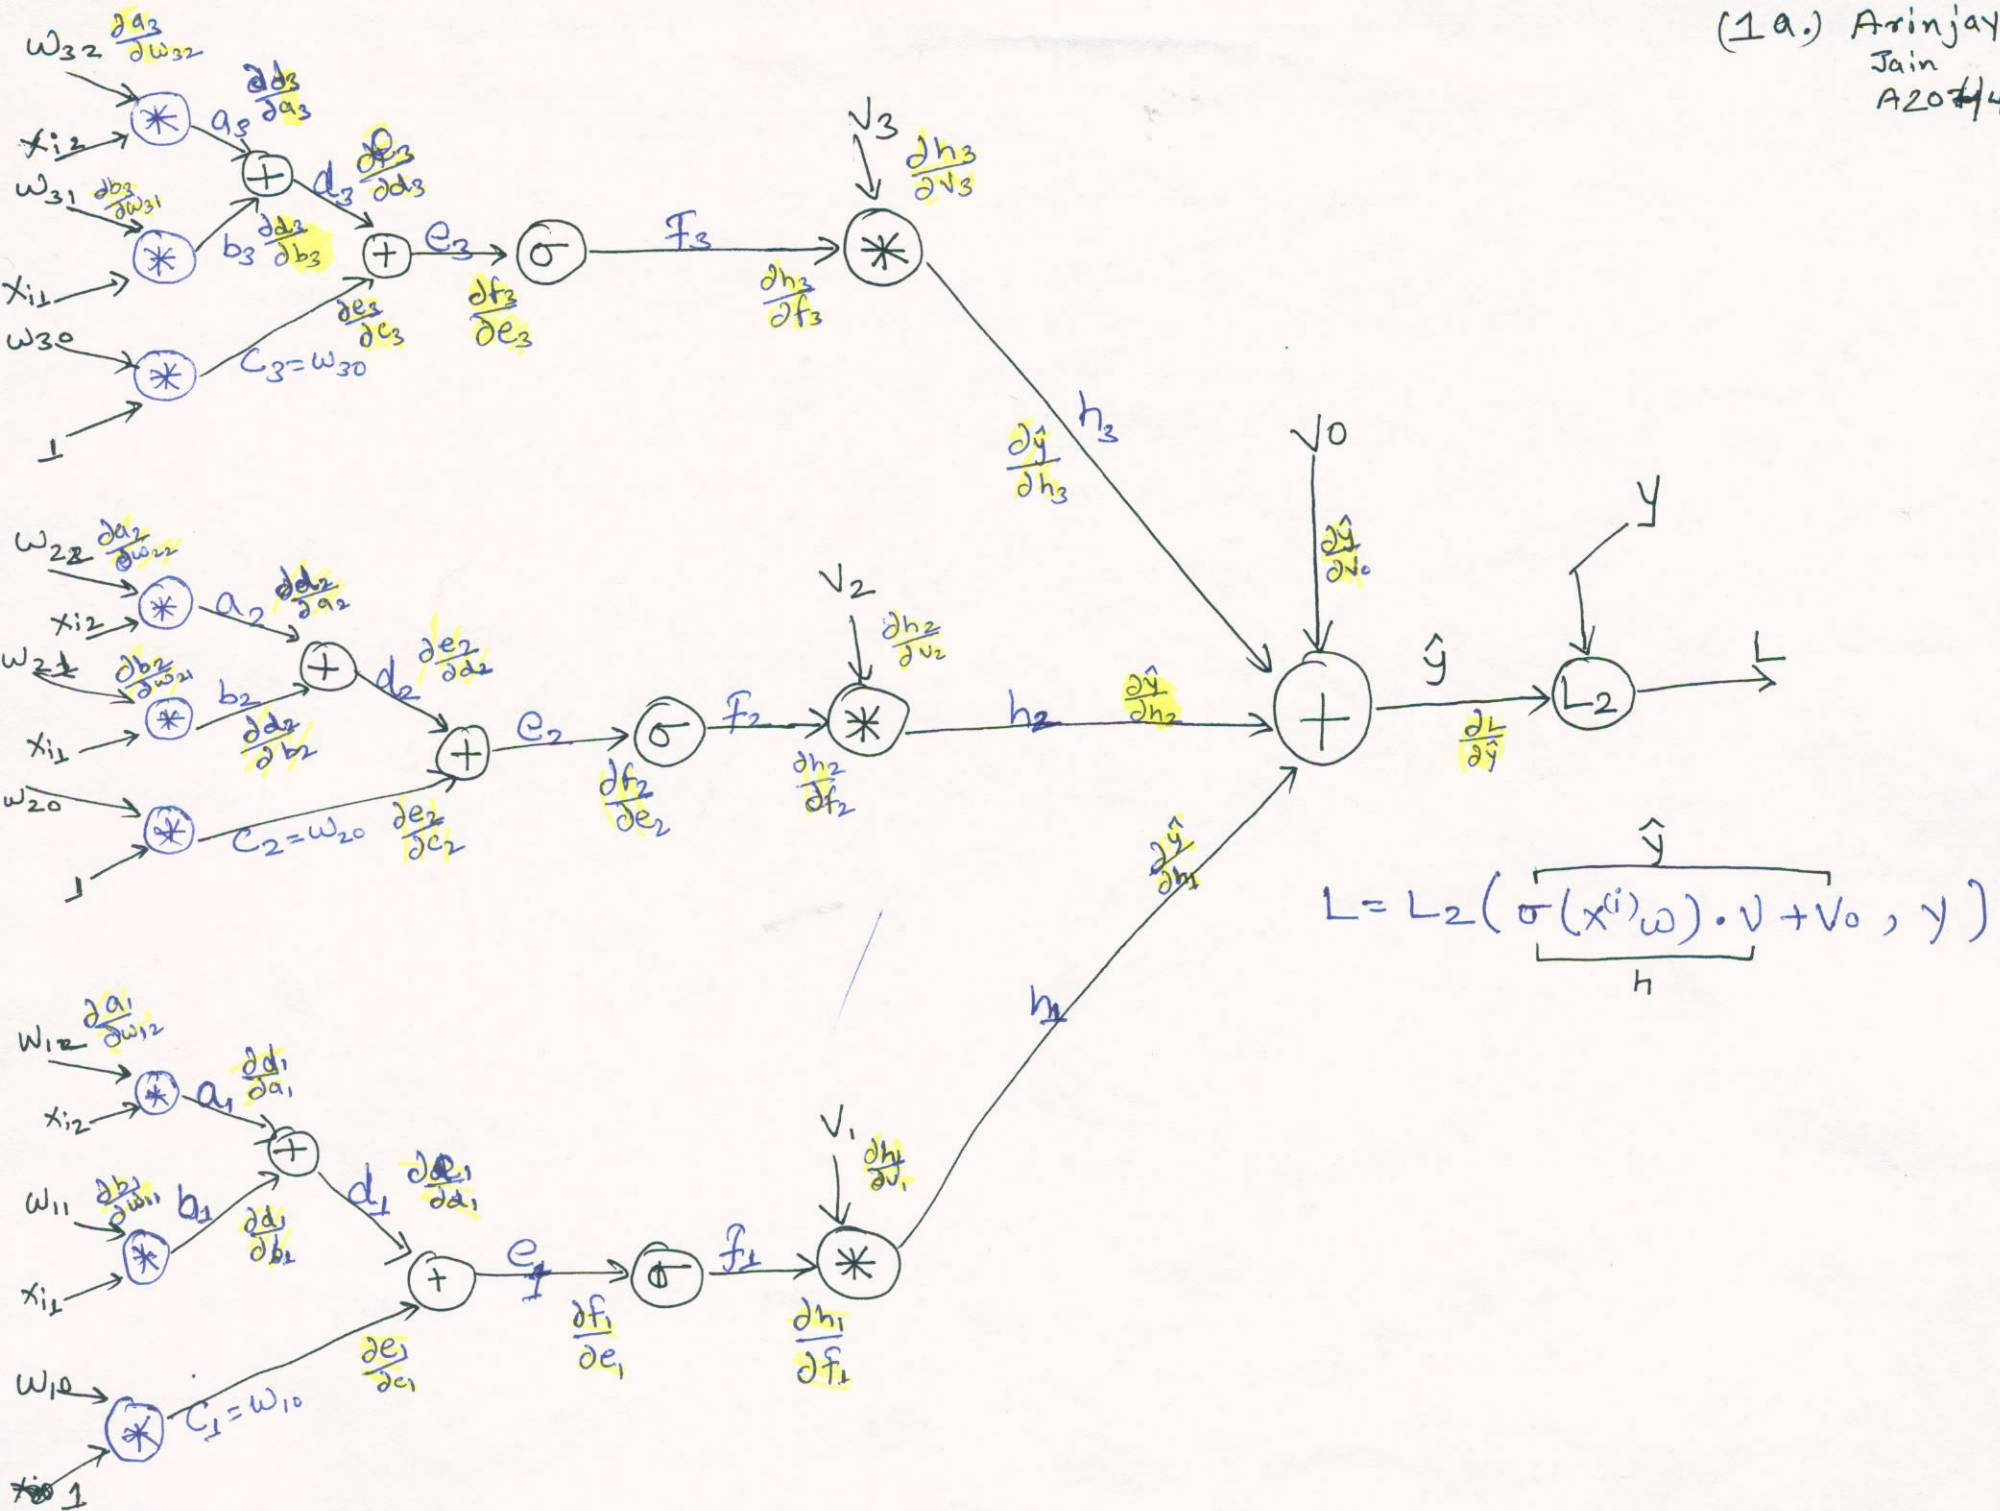 (1a.) Arinjay
Jain
w32 ∂a3/∂w32
∂d3/∂a3
* a3
xi2
+ d3 ∂e3/∂d3
w31 ∂b3/∂w31
* b3 ∂d3/∂b3
xi1
+ e3 σ F3 *
V3
∂h3/∂v3
∂e3/∂c3 ∂f3/∂e3 ∂h3/∂f3
w30
* C3=w30
1
h3
∂ŷ/∂h3
V0
∂ŷ/∂v0
y
w22 ∂a2/∂w22
* a2 ∂d2/∂a2
xi2
V2
∂h2/∂v2
w21 ∂b2/∂w21
+ d2 ∂e2/∂d2
* b2
xi1 ∂d2/∂b2
+ e2 σ F2 * h2 ∂ŷ/∂h2 + ŷ L2 L
∂L/∂ŷ
∂f2/∂e2 ∂h2/∂f2
w20
* C2=w20 ∂e2/∂c2
1
∂ŷ/∂h1
ŷ
L = L2(σ(x(i)w)·V + V0, y)
h
h1
w12 ∂a1/∂w12
* a1 ∂d1/∂a1
xi2
+ d1 ∂e1/∂d1
V1
∂h1/∂v1
w11 ∂b1/∂w11 b1
* ∂d1/∂b1
xi1
+ e1 σ f1 *
∂e1/∂c1 ∂f1/∂e1 ∂h1/∂f1
w10
* C1=w10
1